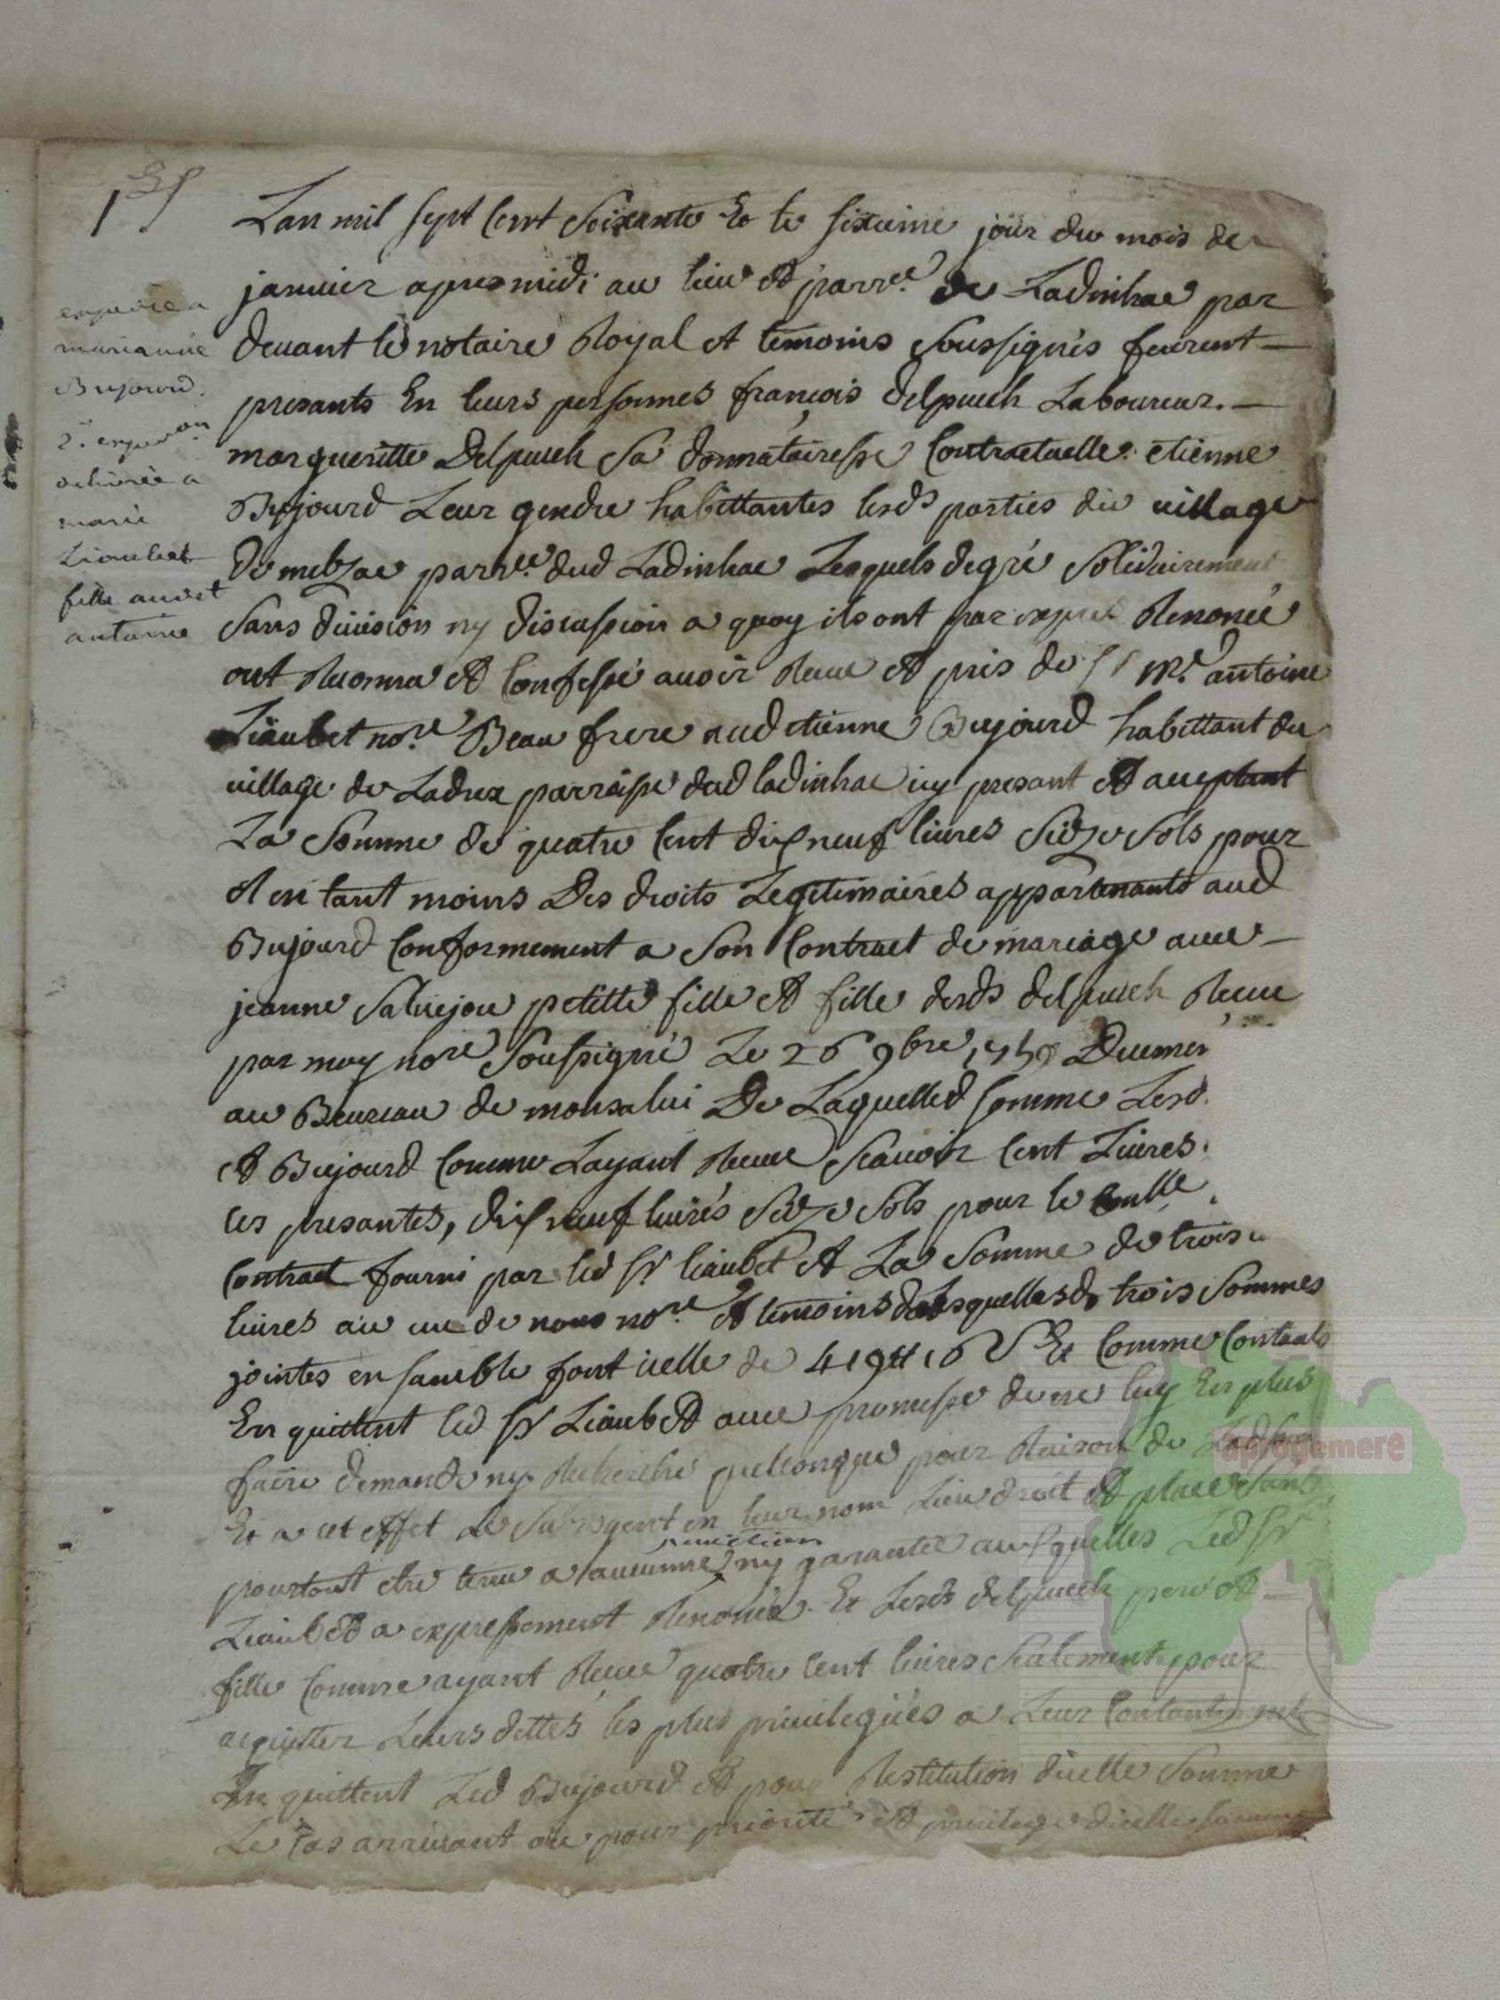 Lan mil sept Cent Soixante Et le sixieme jour du mois de
januier apres midi au lieu et parr.e de Ladinhac par
deuant le notaire Royal et temoins Soussignés feurent
presants En leurs personnes françois delpuech Laboureur.
margueritte Delpuech Sa donnatairesse Contractuelle etienne
Bujourd Leur gendre habittantes lesds parties du uillage
De melzac parr.e dud Ladinhac Lesquels de gré Solidairement
Sans diuision ny discussion a quoy ils ont par exprés Renoncé
ont Reconnu et Confessé auoir Receu et pris de Sr mr. antoine
Liaubet nore. Beau frere aud etienne Bujourd habittant du
uillage de Ladrex parroisse dud ladinhac icy presant et acceptant
La Somme de quatre Cent dix neuf liures Seize Sols pour
et en tant moins Des droits Legitimaires appartenants aud
Bujourd Conformement a Son Contract de mariage auec
jeanne Saluejou petitte fille et fille desds delpuech Receu
par moy nore Soussigné Le 26 9bre
au Beureau de monsalui De Laquelled Somme Lesd
et Bujourd Comme Layant Receue Scauoir Cent Liures
ces presantes, dix neuf liures Seize Sols pour le
Contract fourni par led Sr liaubet et La Somme de trois
liures au ueu de nous nore. et temoins desquellesds trois Sommes
jointes en samble font icelle de 419 16 S Et Comme Contents
En quittent led Sr Liaubet auec promesse de ne luy En plus
faire demande ny Recherche quelconque pour Raison de
Et a cet effet Le Subrogent en leur nom Lieu droit et place Sans
pourtant etre tenu a aucunne euiction ny garantie auxquelles Led Sr
Liaubet a expressement Renoncé. Et Lesds delpuech pere et
fille Comme ayant Receu quatre Cent liures Seulement pour
acquitter Leurs dettes les plus priuilegiées a Leur Contantement
En quittent Led Bujourd et pour Restitution dicelle Somme
Le Cas arriuant ou pour priorité et priuilege dicelle Somme
expediée a
marianne
Bujourd.
2e expedon
deliurée a
marie
Liaubet
fille audit
antoine
aprogemere